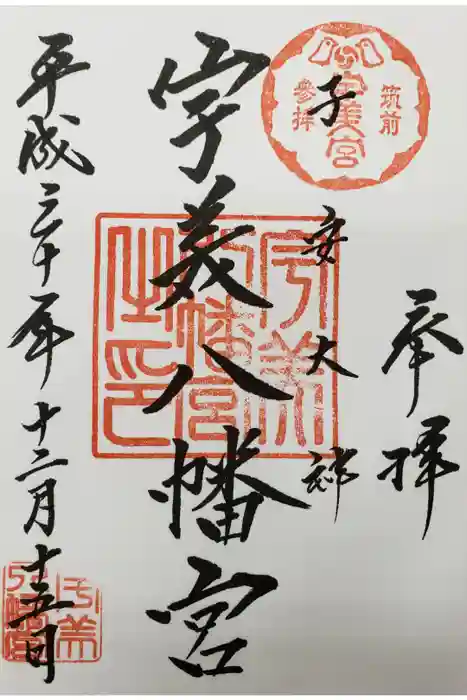 奉拝
筑前
宇美宮
参拝
子安大神
宇美八幡宮
宇美
八幡宮
之印
平成三十年十二月十五日